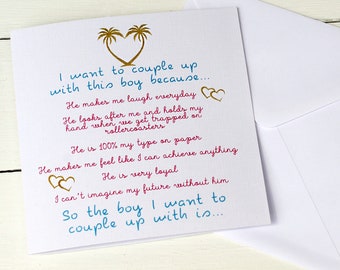 I want to couple up
with this boy because...
He makes me laugh everyday
He looks after me and holds my
hand when we get trapped on
rollercoasters
He is 100% my type on paper
He makes me feel like I can achieve anything
He is very loyal
I can't imagine my future without him
So the boy I want to
couple up with is...